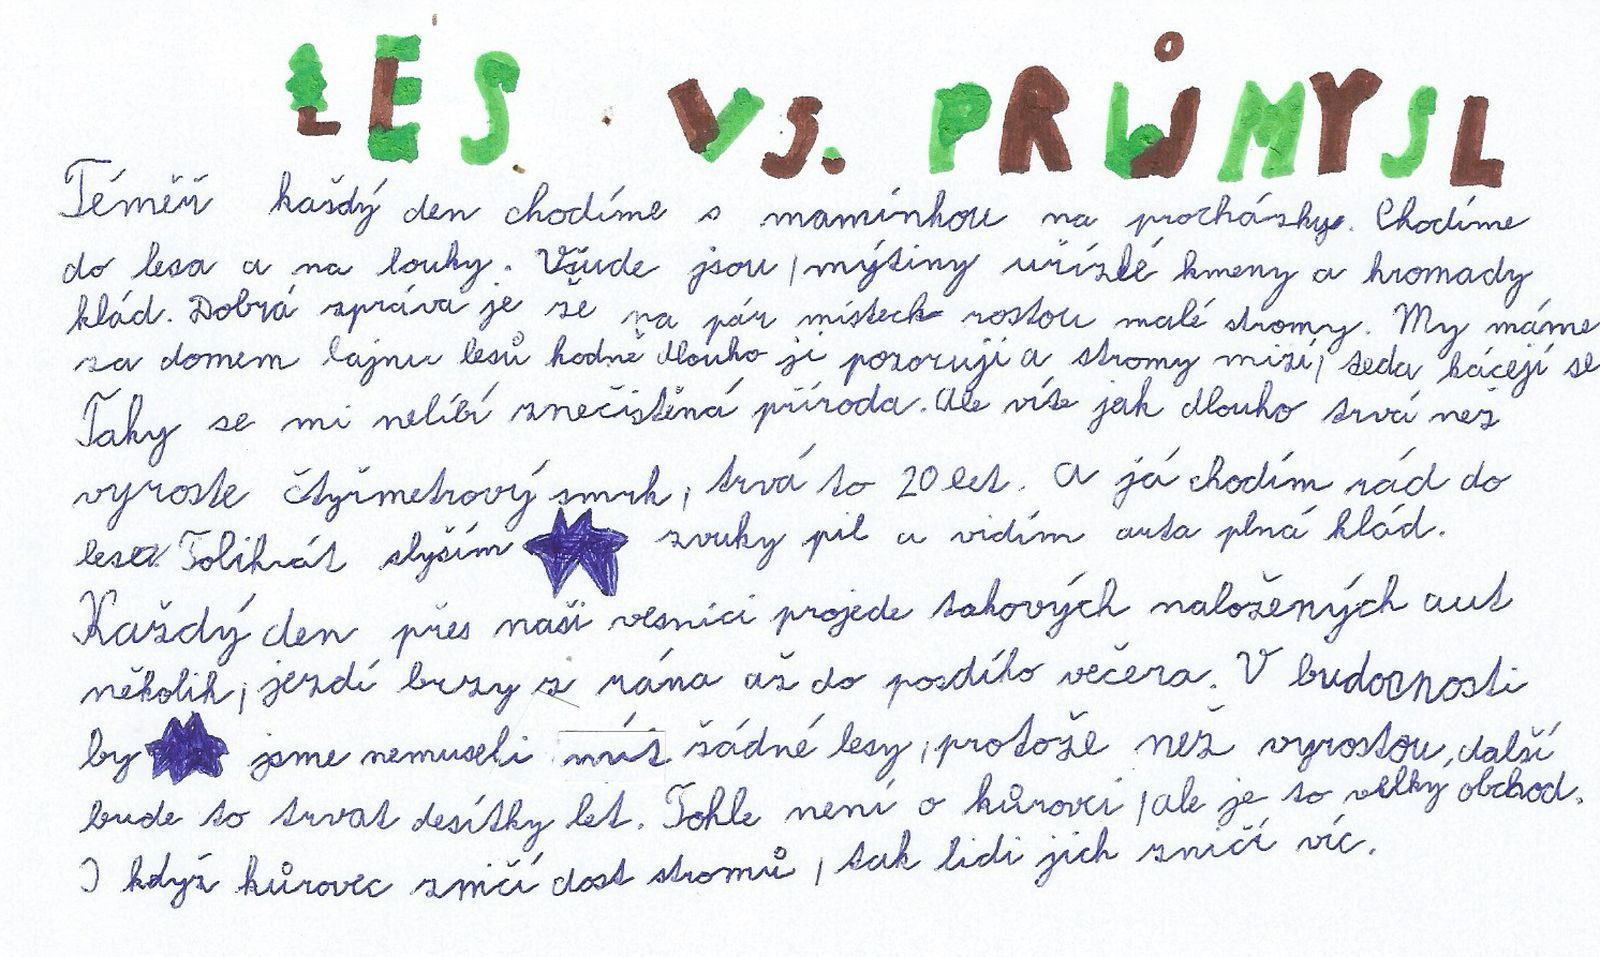 LES VS. PRŮMYSL
Téměř každý den chodíme s maminkou na procházky. Chodíme
do lesa a na louky. Všude jsou, mýtiny uřízlé kmeny a hromady
klád. Dobrá zpráva je že na pár místech rostou malé stromy. My máme
za domem lajnu lesů hodně dlouho ji pozoruji a stromy mizí, teda kácejí se
Taky se mi nelíbí znečistěná příroda. Ale víte jak dlouho trvá než
vyroste čtyřmetrový smrk, trvá to 20 let. A já chodím rád do
lesa Tolikrát slyším zvuky pil a vidím auta plná klád.
Každý den přes naši vesnici projede takových naložených aut
několik, jezdí brzy z rána až do pozdího večera. V budocnosti
by jsme nemuseli mít žádné lesy, protože než vyrostou, další
bude to trvat desítky let. Tohle není o kůrovci, ale je to velky obchod.
I když kůrovec zničí dost stromů, tak lidi jich zničí víc.